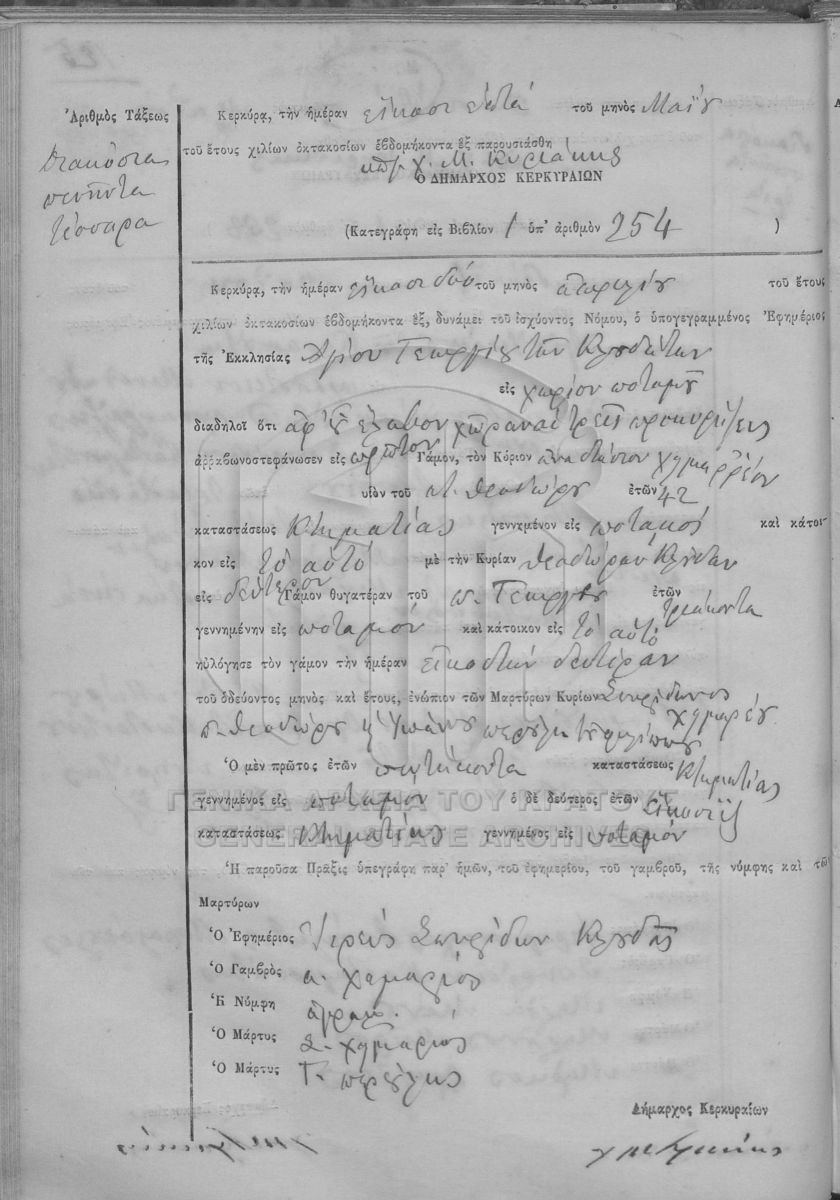 Ἀριθμὸς Τάξεως
Διακόσια
πενῆντα
τέσσαρα
Κερκύρᾳ, τὴν ἡμέραν εἴκοσι ἑπτά τοῦ μηνὸς Μαΐου
τοῦ ἔτους χιλίων ὀκτακοσίων ἑβδομήκοντα ἓξ παρουσιάσθη
Μ. Κυριάκης
Ὁ ΔΗΜΑΡΧΟΣ ΚΕΡΚΥΡΑΙΩΝ
(Κατεγράφη εἰς Βιβλίον 1 ὑπ' ἀριθμὸν 254 )
Κερκύρᾳ, τὴν ἡμέραν εἴκοσι δύο τοῦ μηνὸς ἀπριλίου τοῦ ἔτους
χιλίων ὀκτακοσίων ἑβδομήκοντα ἓξ, δυνάμει τοῦ ἰσχύοντος Νόμου, ὁ ὑπογεγραμμένος Ἐφημέριος
τῆς Ἐκκλησίας Ἁγίου Γεωργίου τῶν Κλουδάτων
εἰς χωρίον ποταμοῦ
διαδηλοῖ ὅτι ἀφ' οὗ ἔλαβον χώραν αἱ τρεῖς προκηρύξεις
ἀῤῥαβωνοστεφάνωσεν εἰς πρῶτον Γάμον, τὸν Κύριον ἀναστάσιον χυμαρρέον
υἱὸν τοῦ π. Θεοδώρου ἐτῶν 42
καταστάσεως Κτηματίας γεννημένον εἰς ποταμόν καὶ κάτοι-
κον εἰς τὸ αὐτό μὲ τὴν Κυρίαν Θεοδώραν Κλούδαν
εἰς δεύτερον Γάμον θυγατέραν τοῦ π. Γεωργίου ἐτῶν τριάκοντα
γεννημένην εἰς ποταμόν καὶ κάτοικον εἰς τὸ αὐτό
ηὐλόγησε τὸν γάμον τὴν ἡμέραν εἰκοστὴν δευτέραν
τοῦ ὁδεύοντος μηνὸς καὶ ἔτους, ἐνώπιον τῶν Μαρτύρων Κυρίων Σπυρίδωνος
π. Θεοδώρου χυμαρέου
Ὁ μὲν πρῶτος ἐτῶν πεντήκοντα καταστάσεως Κτηματίας
γεννημένος εἰς ποταμόν ὁ δὲ δεύτερος ἐτῶν εἴκοσι ἕξ
καταστάσεως Κτηματίας γεννημένος εἰς ποταμόν
ΓΕΝΙΚΑ ΑΡΧΕΙΑ ΤΟΥ ΚΡΑΤΟΥΣ
GENERAL STATE ARCHIVES
Ἡ παροῦσα Πρᾶξις ὑπεγράφη παρ' ἡμῶν, τοῦ ἐφημερίου, τοῦ γαμβροῦ, τῆς νύμφης καὶ τῶν
Μαρτύρων
Ὁ Ἐφημέριος Ἱερεύς Σπυρίδων Κλούδης
Ὁ Γαμβρὸς α. χεμαριός
Ἡ Νύμφη ἀγραμ.
Ὁ Μάρτυς Σ. χυμαριός
Ὁ Μάρτυς Γ. περούλης
Δήμαρχος Κερκυραίων